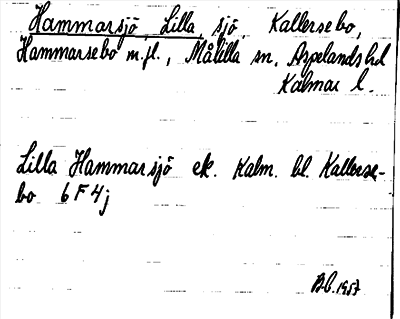 Hammarsjö, Lilla, sjö, Kallersebo,
Hammarsebo m.fl., Målilla sn, Aspelands hd
Kalmar l.
Lilla Hammarsjö ek. Kalm. bl. Kallerse-
bo 6 F 4 j
1957